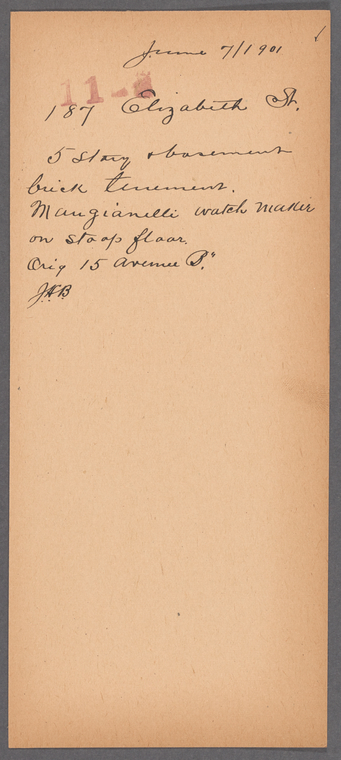 June 7/1901
11-
187 Elizabeth St.
5 story & basement
brick tenement.
Mangianelli watch maker
on stoop floor.
Orig 15 Avenue B."
JHB